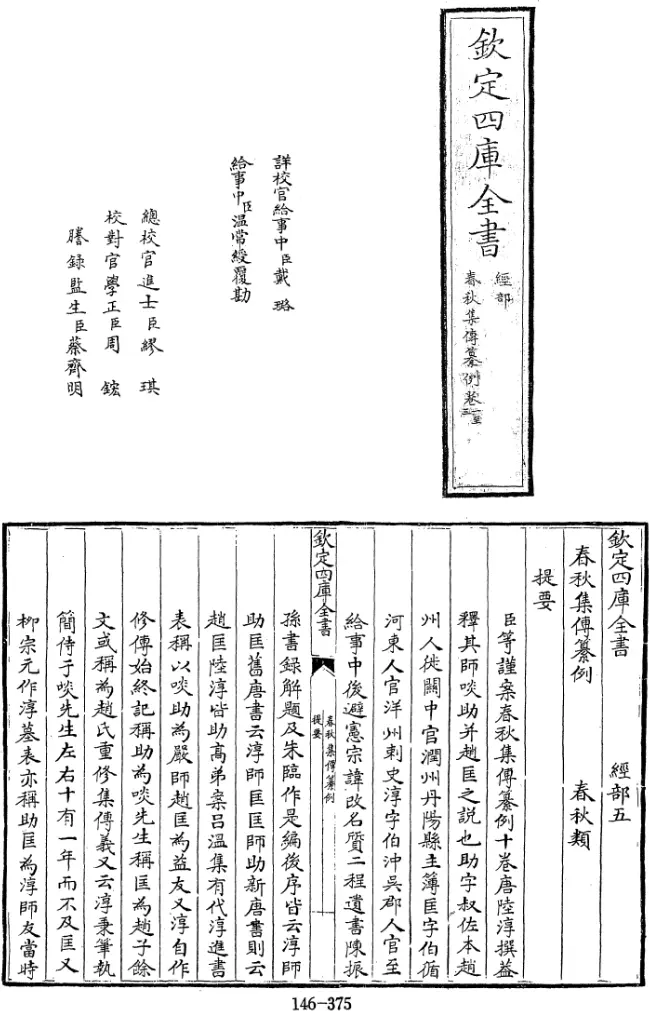 欽定四庫全書
經部
春秋集傳纂例卷一至三
詳校官給事中臣戴璐
給事中臣溫常綬覆勘
總校官進士臣繆琪
校對官學正臣周鋐
謄錄監生臣蔡齊明
欽定四庫全書 經部五
春秋集傳纂例 春秋類
提要
臣等謹案春秋集傳纂例十卷唐陸淳撰蓋
釋其師啖助并趙匡之說也助字叔佐本趙
州人徙關中官潤州丹陽縣主簿匡字伯循
河東人官洋州刺史淳字伯沖吳郡人官至
給事中後避憲宗諱改名質二程遺書陳振
欽定四庫全書
春秋集傳纂例
提要
孫書錄解題及朱臨作是編後序皆云淳師
助匡舊唐書云淳師匡匡師助新唐書則云
趙匡陸淳皆助高弟案呂溫集有代淳進書
表稱以啖助為嚴師趙匡為益友又淳自作
修傳始終記稱助為啖先生稱匡為趙子餘
文或稱為趙氏重修集傳義又云淳秉筆執
簡侍于啖先生左右十有一年而不及匡又
柳宗元作淳墓表亦稱助匡為淳師友當時
146-375